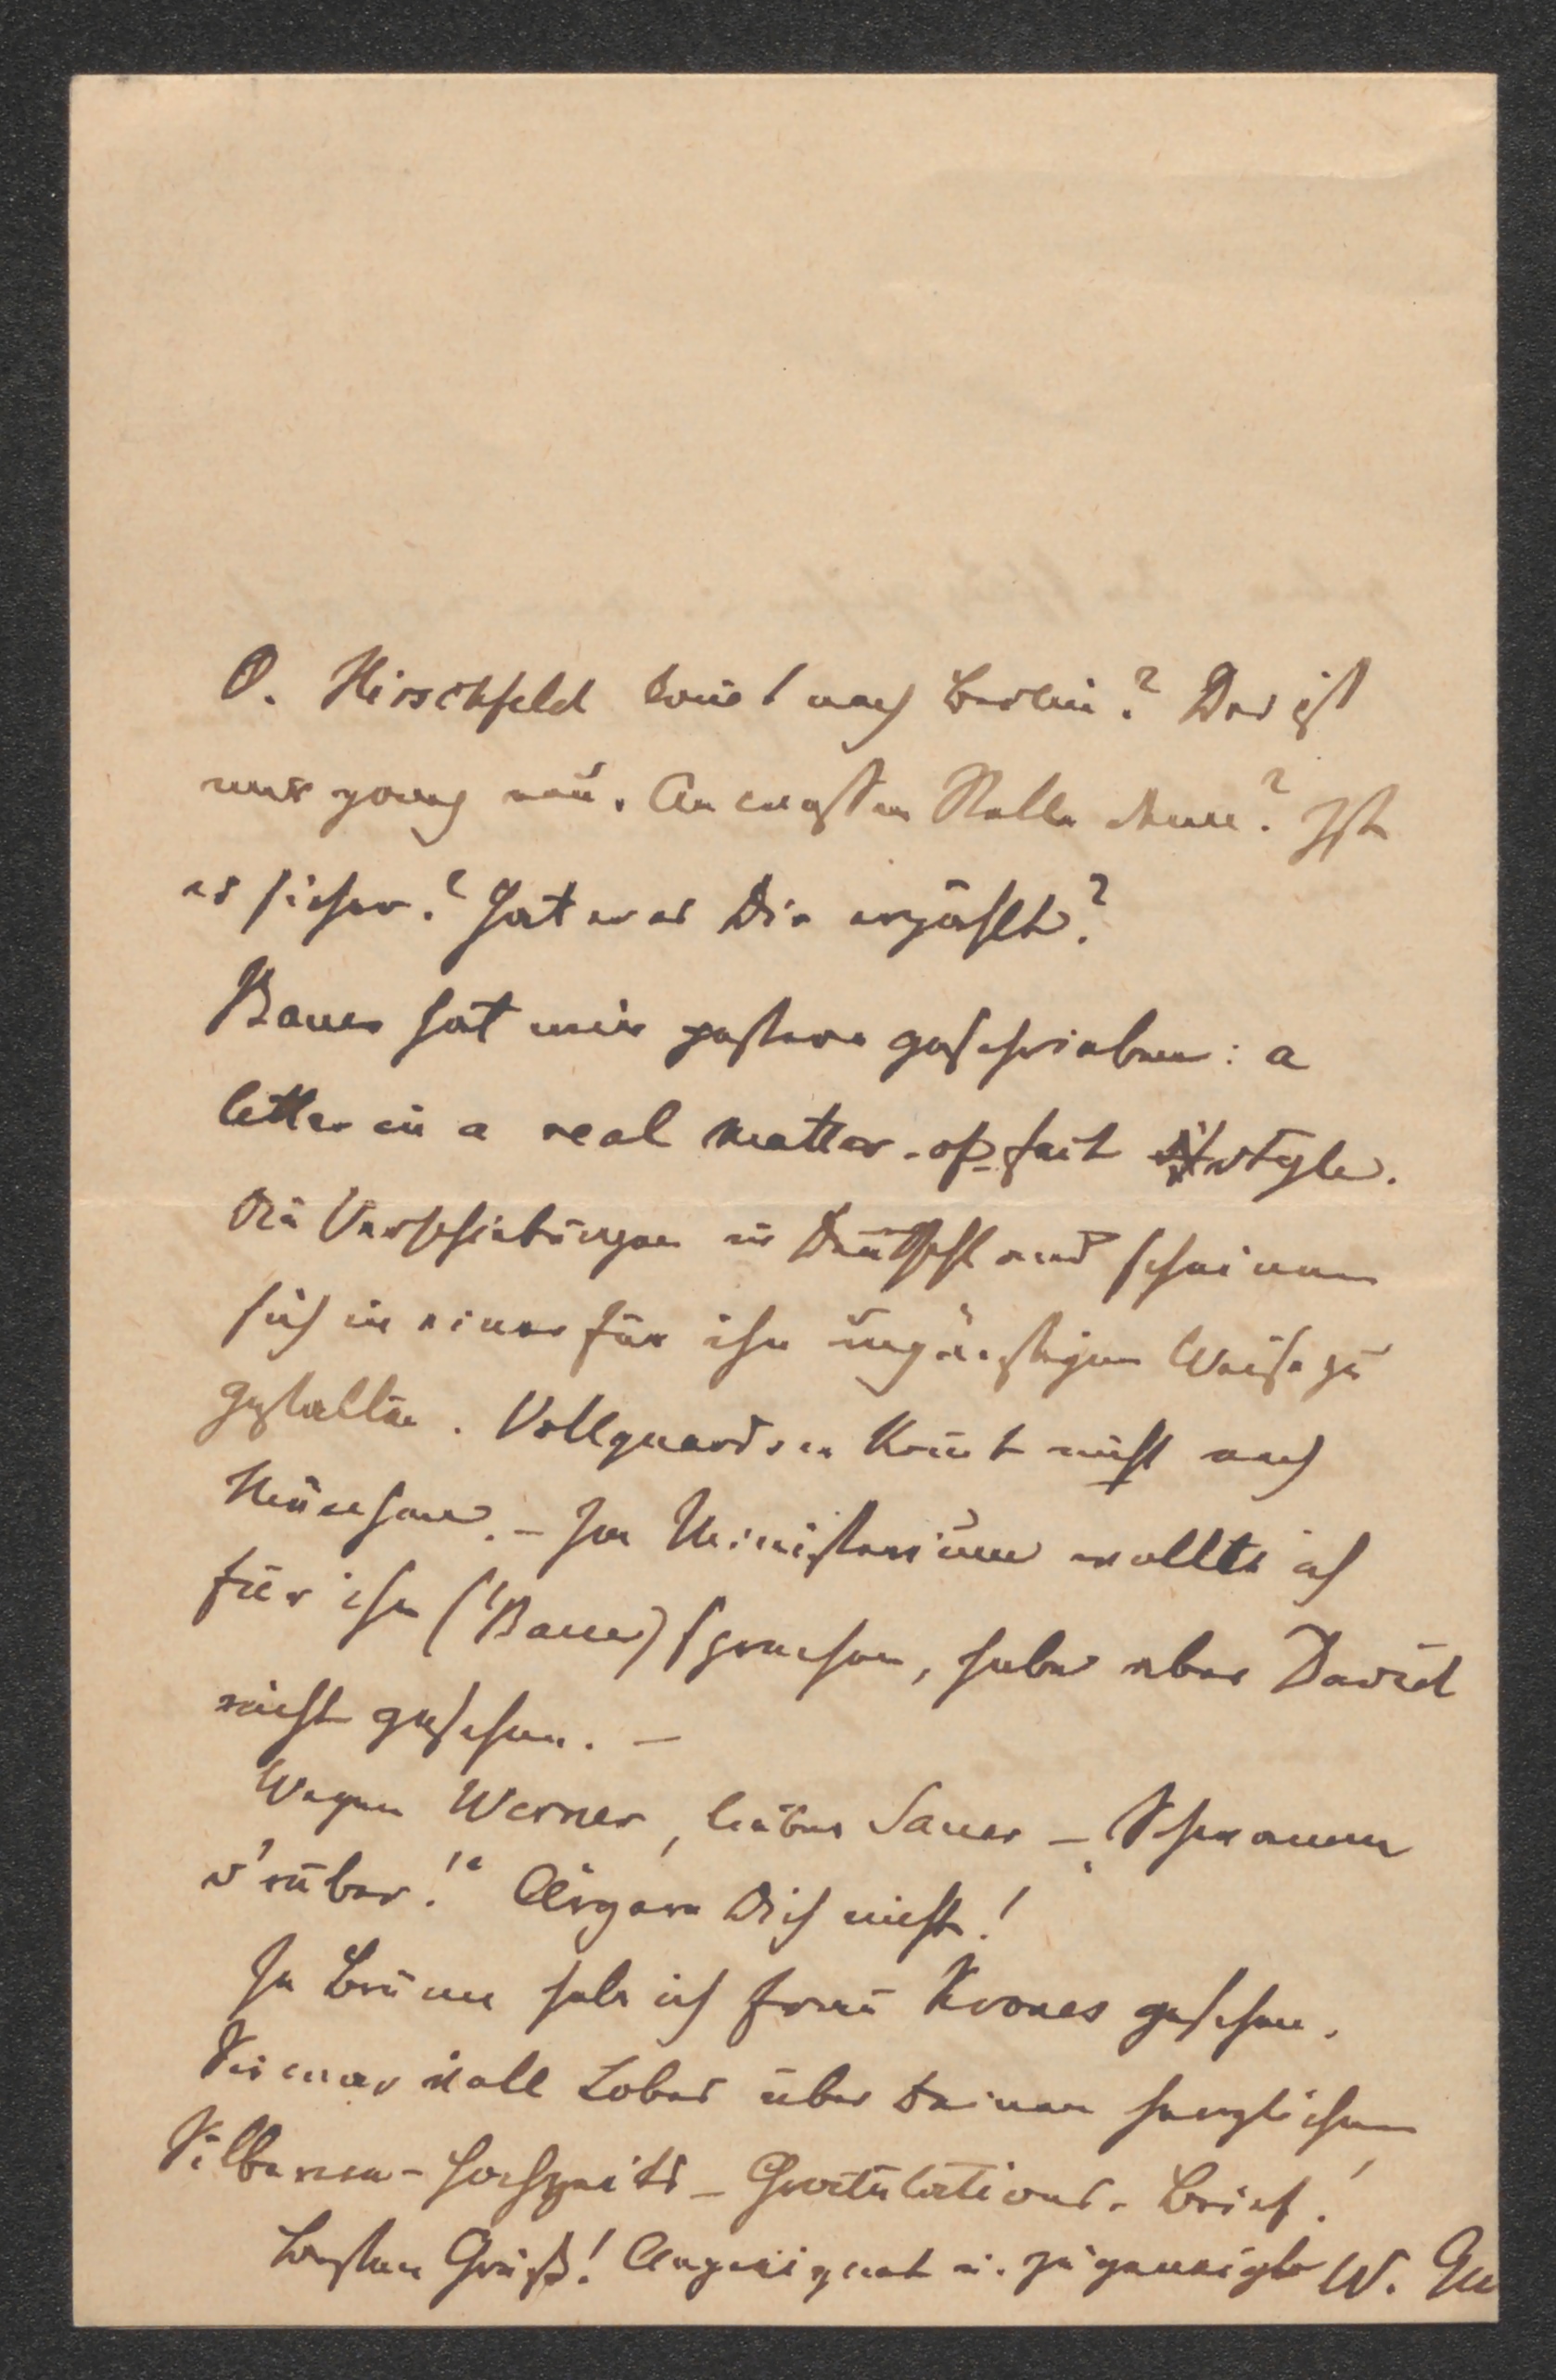 O. Hirschfeld komt nach Berlin? Das ist
mir ganz neu. An wessen Stelle denn? Ist
es sicher? Hat er es Dir erzählt?
Bauer hat mir gestern geschrieben: a
letter in a real matter-of-fact style.
Die Verschiebungen in Deutschland scheinen
sich in einer für ihn ungünstigen Weise zu
gestalten. Vollquardsen komt nicht nach
München. – Im Ministerium wollte ich
für ihn (Bauer) sprechen, habe aber David
nicht gesehen. –
Wegen Werner, lieber Sauer – „Schwamm
d'rüber!“ Ärgere Dich nicht!
In Brünn habe ich Frau Krones gesehen.
Sie war voll Lobes über Deinen herzlichen
Silbernen-Hochzeits-Gratulations-Brief!
Besten Gruß! Angeeignet u. zugeneigt W. Gu